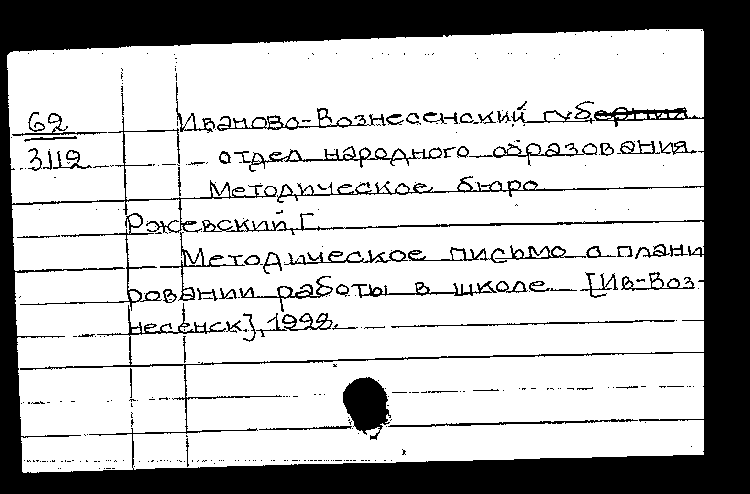 62
3112
Иваново-Вознесенский губерния.
отдел народного образования.
Методическое бюро
Ржевский, Г.
Методическое письмо о плани
ровании работы в школе. [Ив-Воз-
несенск], 1928.